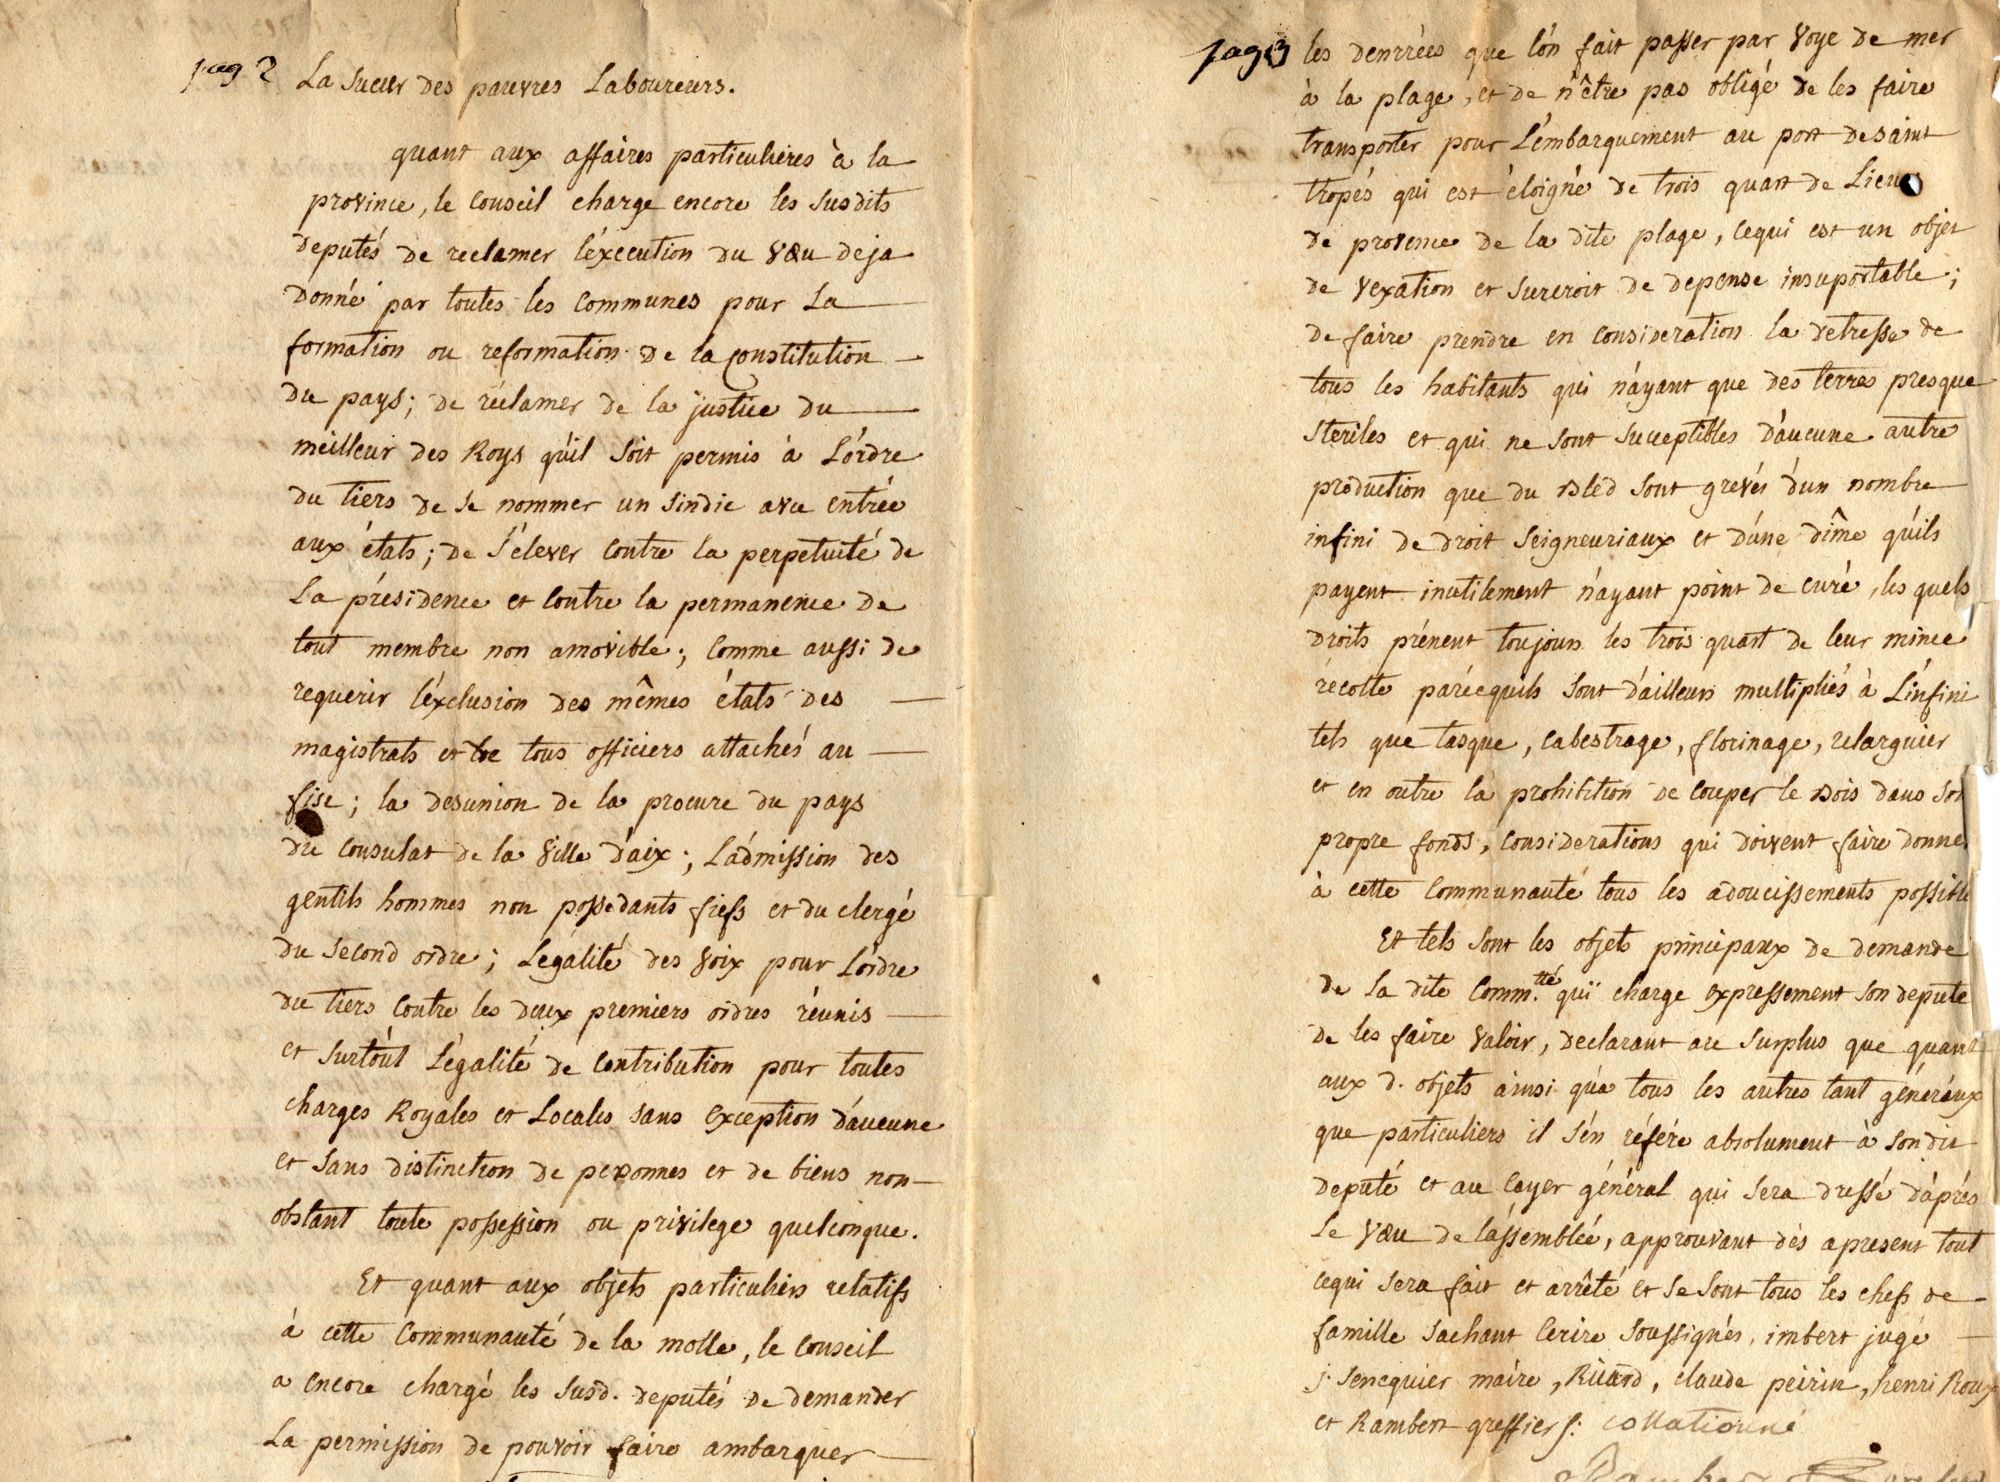 pag 2
La sueur des pauvres Laboureurs.
quant aux affaires particulières à la
province, le Conseil charge encore les susdits
deputés de reclamer l'éxecution du vœu deja
donné par toutes les Communes pour la
formation ou reformation de la Constitution
du pays; de réclamer de la justice du
meilleur des Roys qu'il soit permis à L'órdre
du tiers de se nommer un sindic avec entrée
aux états; de s'élever contre la perpetuité de
La présidence et contre la permanence de
tout membre non amovible; comme aussi de
requerir l'éxclusion des mêmes états des
magistrats et de tous officiers attachés au
fisc; la desunion de la procure du pays
du Consulat de la ville d'aix; L'admission des
gentils hommes non possedants fiefs et du clergé
du second ordre; L'égalité des voix pour L'órdre
du tiers contre les deux premiers ordres réunis
et surtout L'égalité de Contribution pour toutes
charges Royales et Locales sans exception d'aucune
et sans distinction de personnes et de biens non-
obstant toute possession ou privilege quelconque.
Et quant aux objets particuliers relatifs
à cette Communauté de la molle, le Conseil
a encore chargé les susd. deputés de demander
La permission de pouvoir faire ambarquer
pag 3
les denrrées que l'ón fait passer par voye de mer
à la plage, et de n'être pas obligé de les faire
transporter pour L'émbarquement au port de saint
tropés qui est éloigné de trois quart de Lieue
de provence de la dite plage, cequi est un objet
de vexation et surcroit de depense insuportable;
de faire prendre en Consideration la detresse de
tous les habitants qui n'ayant que des terres presque
steriles et qui ne sont suceptibles d'aucune autre
production que du Bled sont grevés d'un nombre
infini de droit seigneuriaux et d'une dîme qu'ils
payent inutilement n'ayant point de curé, les quels
droits prénent toujours les trois quart de leur mince
récolte parécequils sont d'ailleurs multipliés à L'infini
tels que tasque, Cabestrage, florinage, relarguier
et en outre la prohibition de couper le Bois dans son
propre fonds, Considerations qui doivent faire donner
à cette Communauté tous les adoucissements possible
Et tels sont les objets principaux de demande
de la dite Comm.tté quï charge expressement son deputé
de les faire valoir, declarant au surplus que quant
aux d. objets ainsi qu'a tous les autres tant généraux
que particuliers il s'én référe absolument à son dit
deputé et au Cayer général qui sera dressé d'aprés
Le vœu de l'assemblée, approuvant dés apresent tout
cequi sera fait et arrêté et se sont tous les chefs de
famille sachant Ecrire soussignés, imbert jugé
j. sencquier maire, Ricard, claude peirin, henri Roux
et Rambert greffier s: Collationné